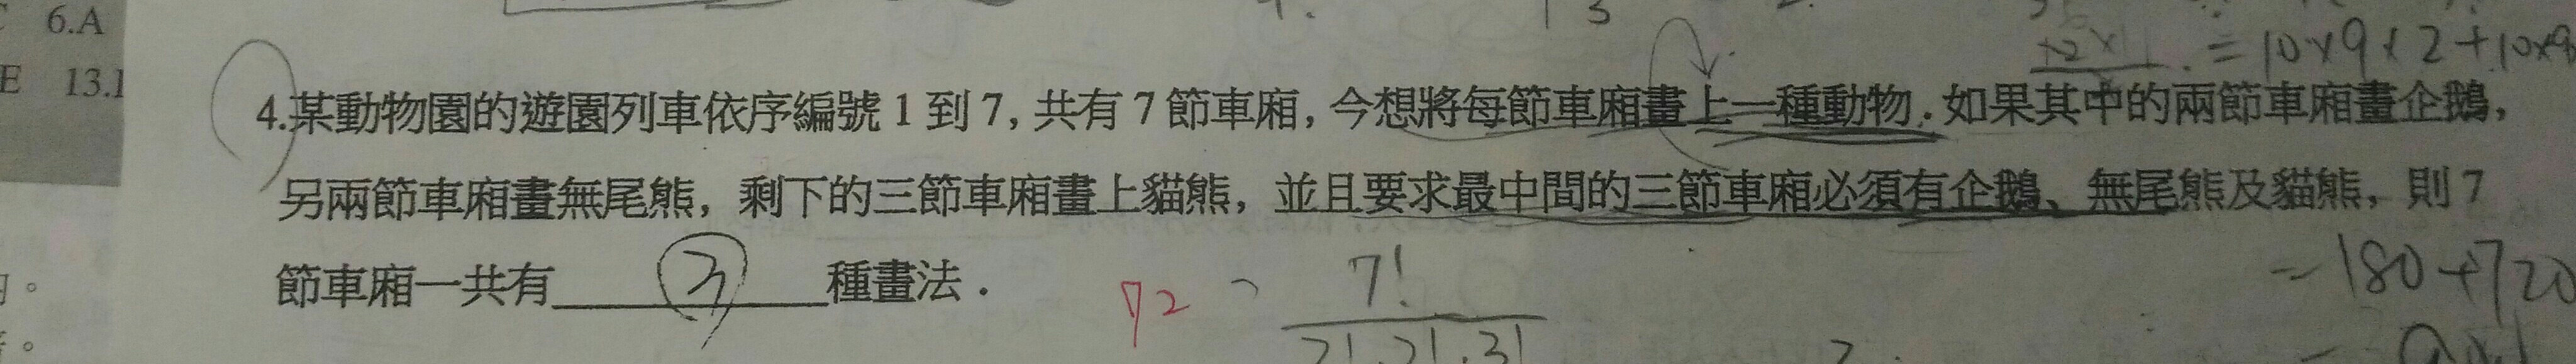 6.A
E 13.1
= 10×9×2+10×9
4.某動物園的遊園列車依序編號 1 到 7, 共有 7 節車廂, 今想將每節車廂畫上一種動物. 如果其中的兩節車廂畫企鵝,
另兩節車廂畫無尾熊, 剩下的三節車廂畫上貓熊, 並且要求最中間的三節車廂必須有企鵝、無尾熊及貓熊, 則 7
節車廂一共有 種畫法.
72
7!
2!·2!·3!
=180+720